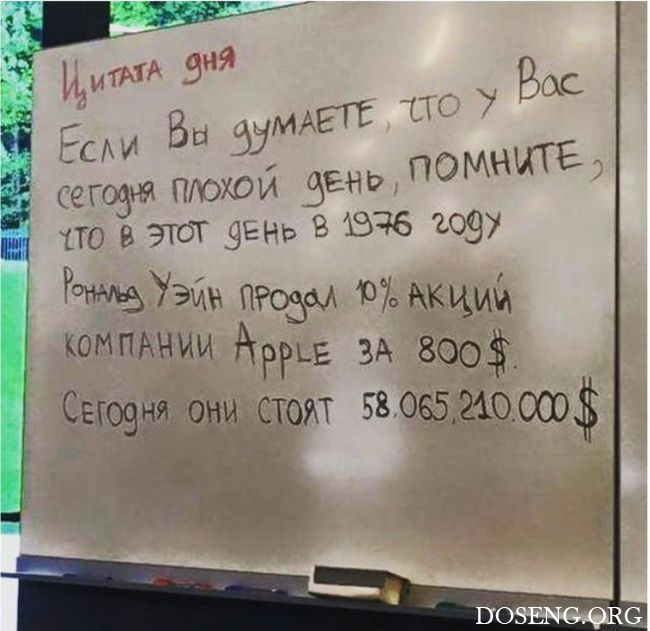 Цитата дня
Если Вы думаете, что у Вас
сегодня плохой день, помните,
что в этот день в 1976 году
Рональд Уэйн продал 10% акций
компании Apple за 800$.
Сегодня они стоят 58.065.210.000$
DOSENG.ORG